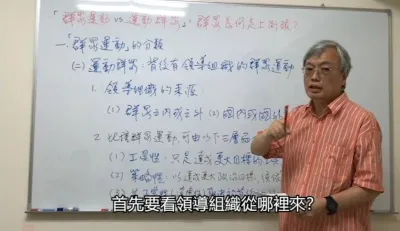 「群眾運動 vs 運動群眾」: 群眾為何走上街頭?
一、「群眾運動」的分類
(二) 運動群眾:背後有領導組織的群眾運動
1. 領導組織的來源
(1) 群眾之內或之外 (2) 國內或國外
2. 此種群眾運動,可由以下三層面
(1) 工具性:只是達成更大目標的
(2) 策略性:以達成更大政治目標
首先要看領導組織從哪裡來?